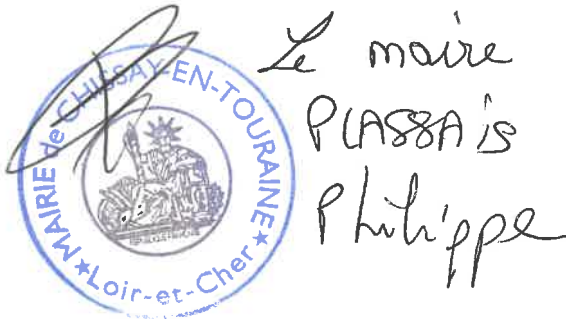 MAIRIE de CHISSAY-EN-TOURAINE
★ Loir-et-Cher ★
Le maire
PLASSAIS
Philippe